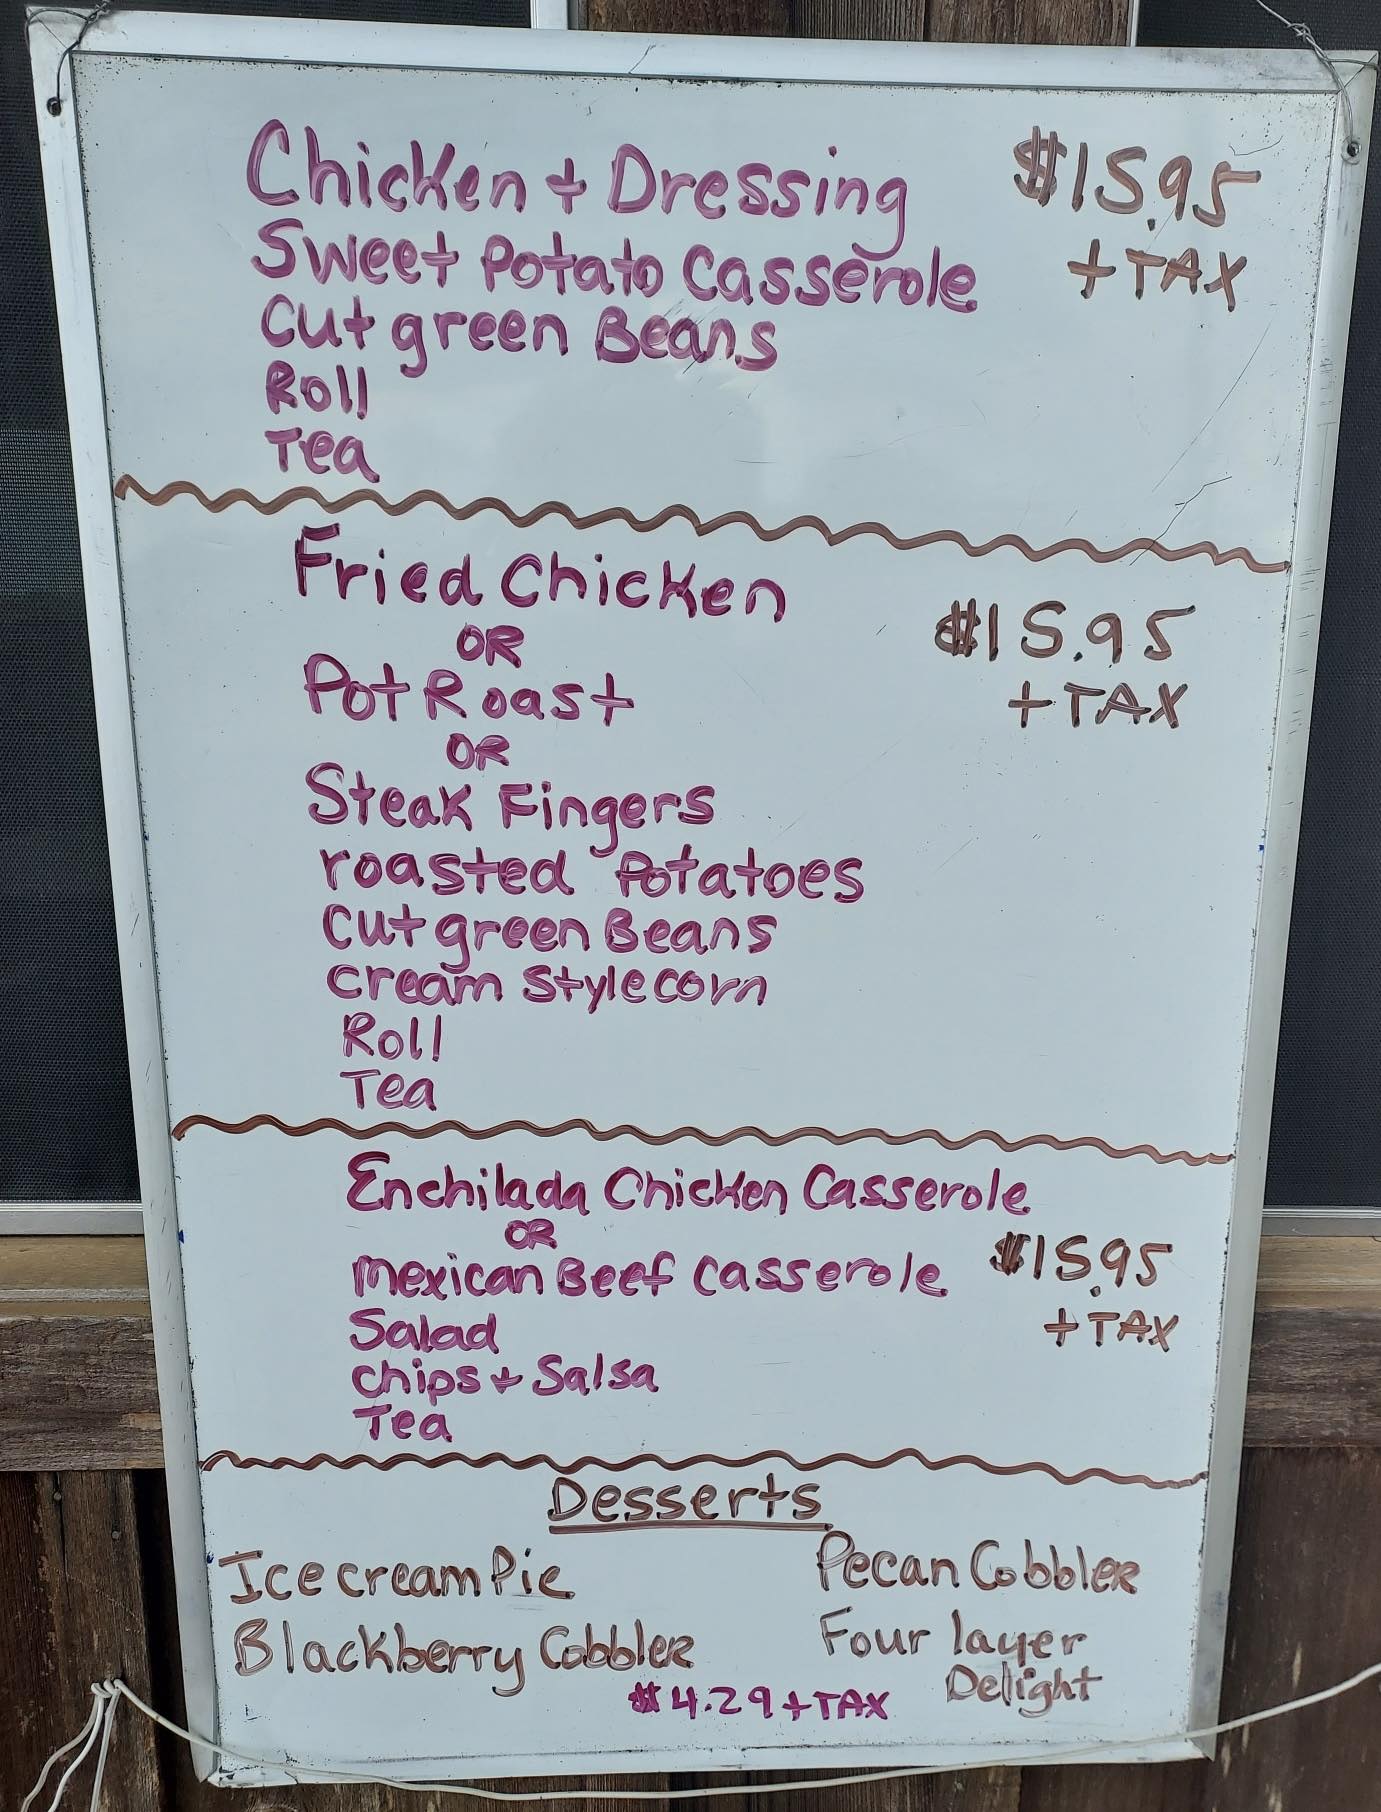 Chicken + Dressing $15.95
Sweet Potato Casserole + TAX
Cut green Beans
Roll
Tea
Fried Chicken $15.95
OR
Pot Roast + TAX
OR
Steak Fingers
roasted Potatoes
Cut green Beans
cream Style corn
Roll
Tea
Enchilada Chicken Casserole
OR
Mexican Beef Casserole $15.95
Salad + TAX
chips + Salsa
Tea
Desserts
Ice cream Pie Pecan Cobbler
Blackberry Cobbler Four layer
Delight
$4.29 + TAX